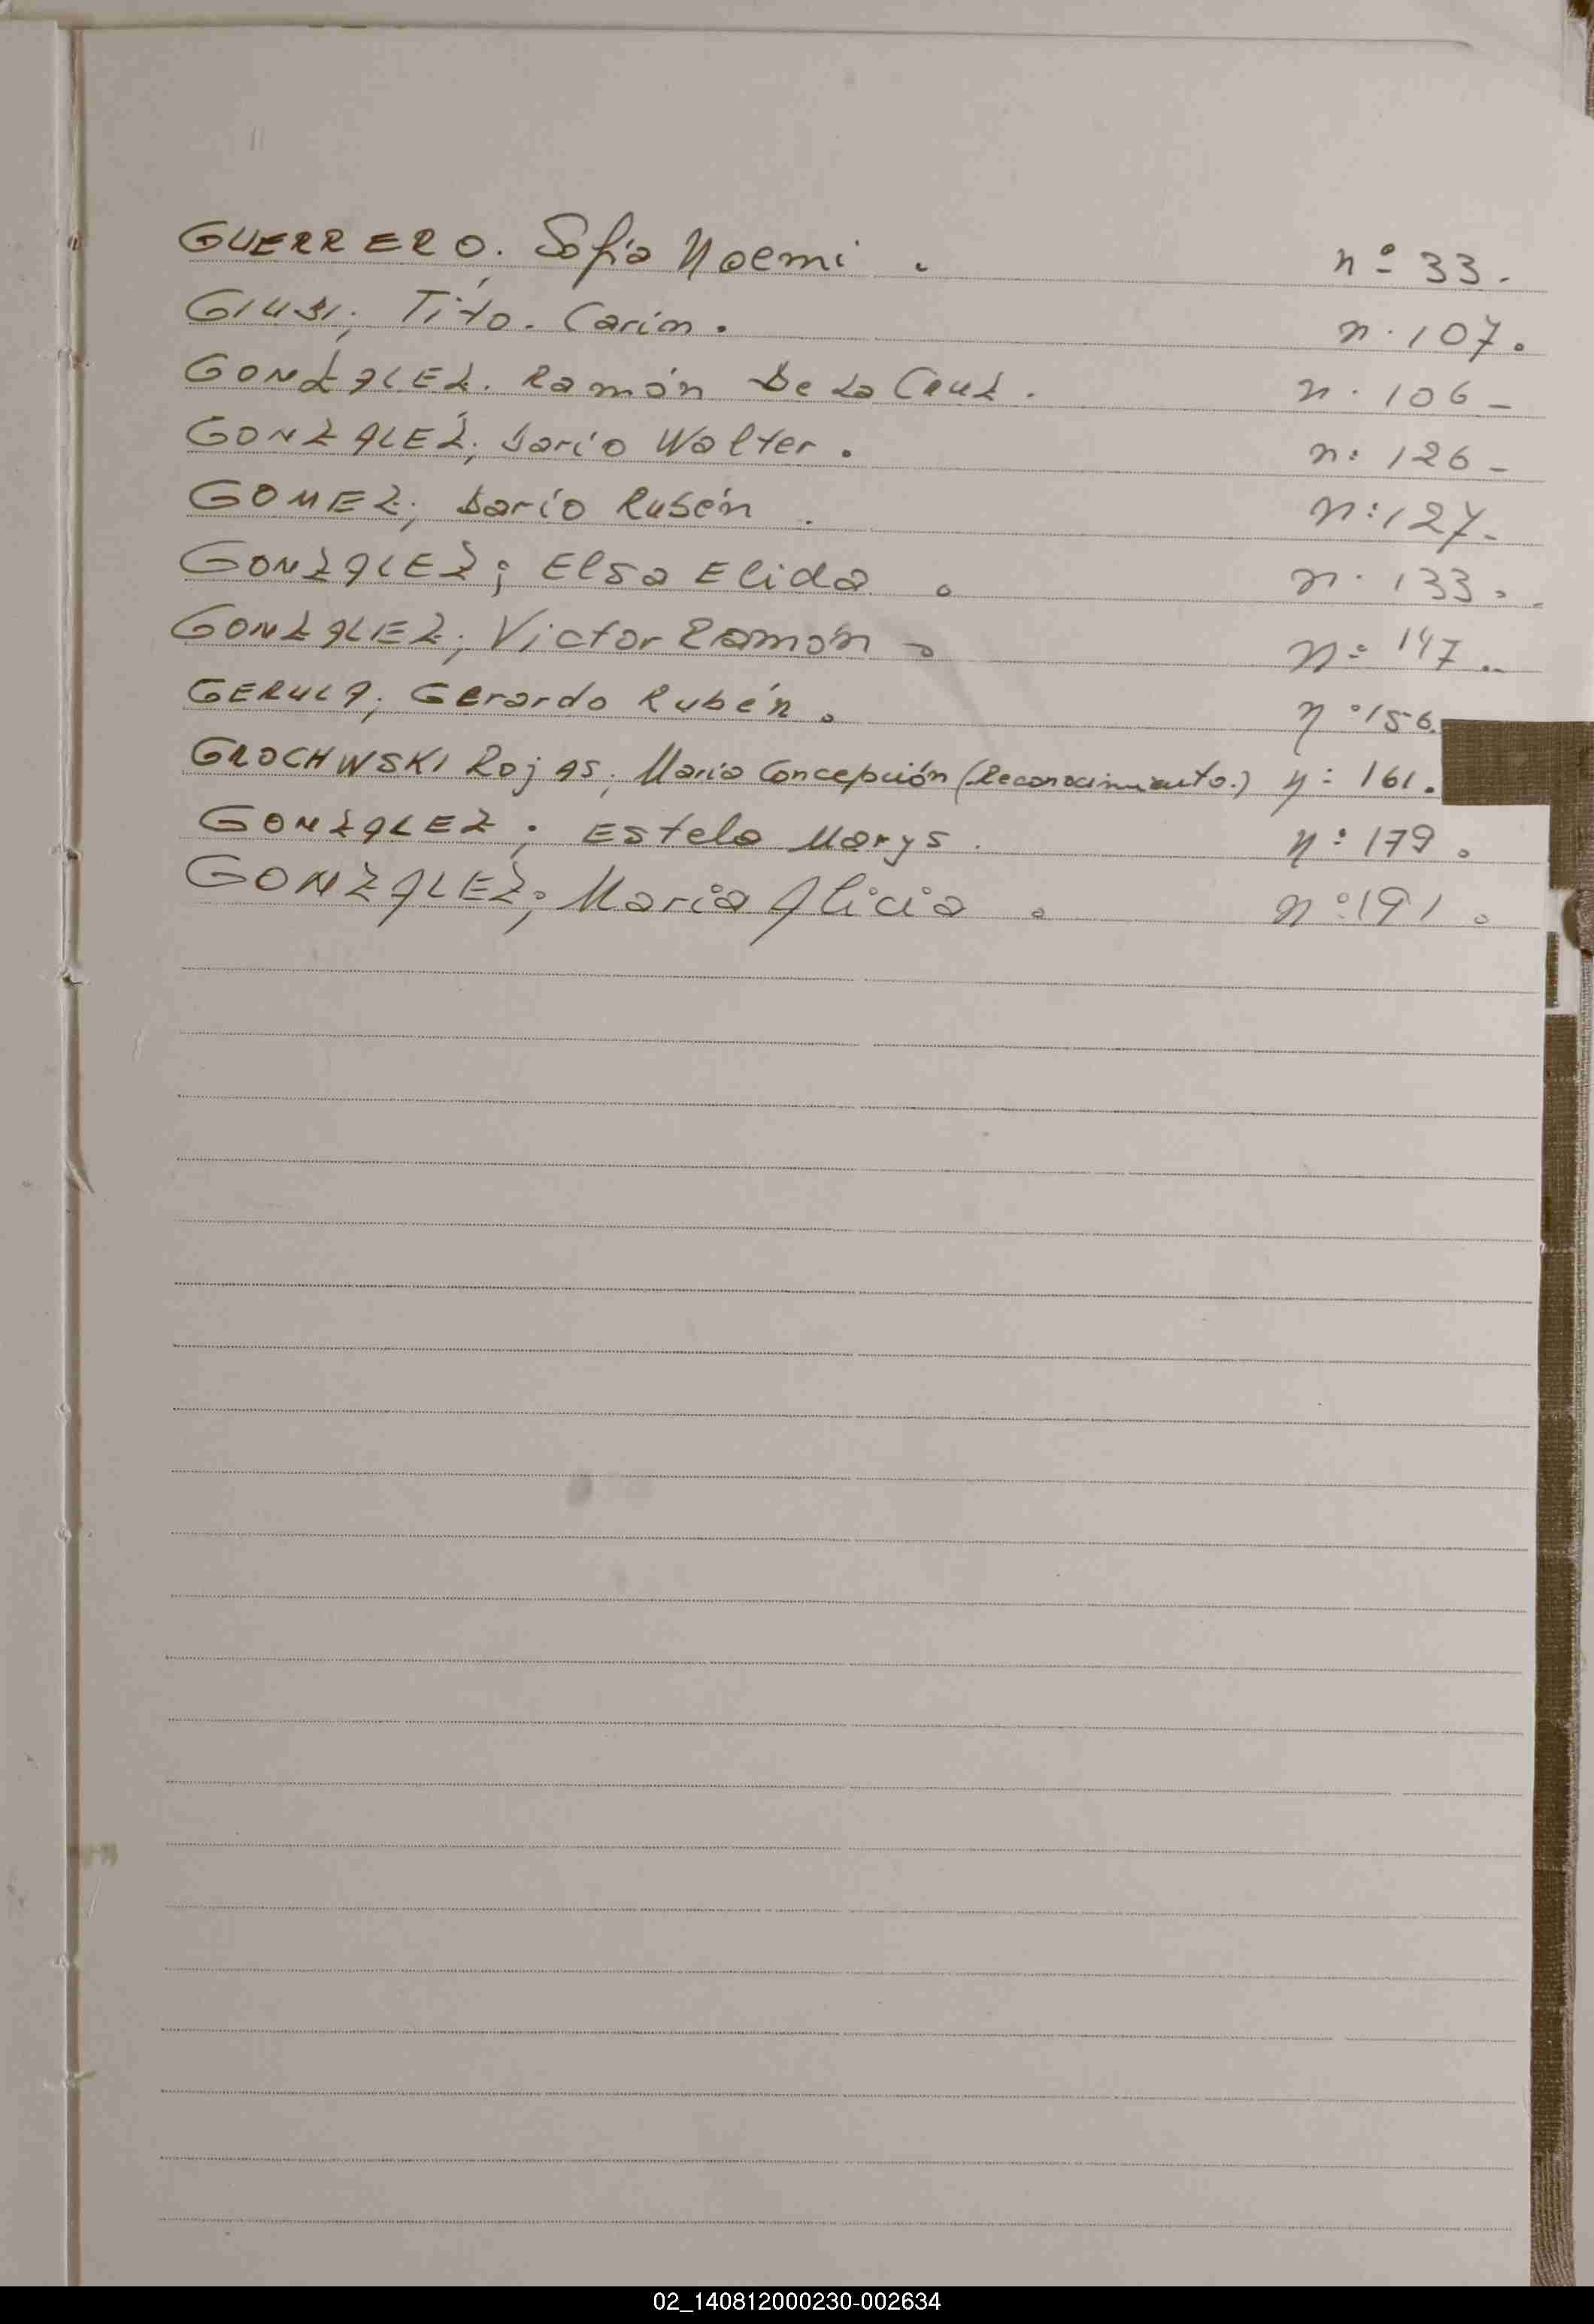 GUERRERO. Sofía Noemi . nº 33.
GIUSI; Tito. Carim. n. 107.
GONZALEZ. Ramón De La Cruz. n. 106-
GONZALEZ; Darío Walter. n: 126-
GOMEZ; Darío Rubén . n: 127-
GONZALEZ; Elsa Elida . n. 133.
GONZALEZ; Victor Ramón . nº 147.
GERULA; Gerardo Rubén . nº 156.
GROCHWSKI Rojas; María Concepción (Reconocimiento.) n: 161.
GONZALEZ; Estela Marys . n: 179.
GONZALEZ; María Alicia . nº 191.
02_140812000230-002634